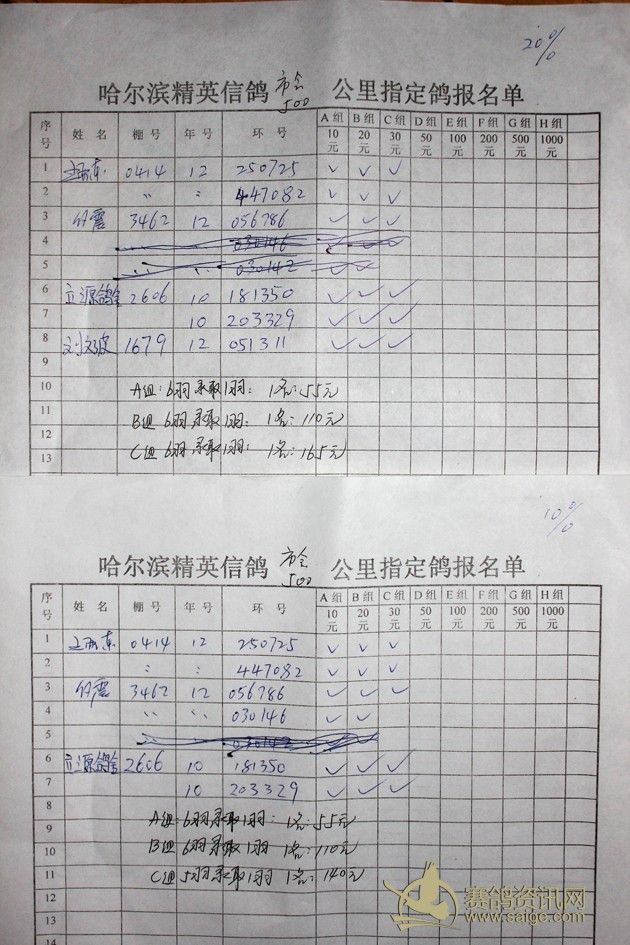 20%
哈尔滨精英信鸽 市会 500 公里指定鸽报名单
序号 姓 名 棚 号 年 号 环 号 A 组 10 元 B 组 20 元 C 组 30 元 D 组 50 元 E 组 100 元 F 组 200 元 G 组 500 元 H 组 1000 元
1 0414 12 250725 ✓ ✓ ✓
2 〃 〃 447082 ✓ ✓ ✓
3 3462 12 056786 ✓ ✓ ✓
4 030146
5 〃 〃 030142
6 立源鸽舍 2606 10 181350 ✓ ✓ ✓
7 10 203329 ✓ ✓ ✓
8 刘文波 1679 12 051311 ✓ ✓ ✓
9
10 A组:6羽录取1羽: 1名:55元
11 B组 6羽录取1羽: 1名:110元
12 C组 6羽录取1羽: 1名:165元
13
10%
哈尔滨精英信鸽 市会 500 公里指定鸽报名单
序号 姓 名 棚 号 年 号 环 号 A 组 10 元 B 组 20 元 C 组 30 元 D 组 50 元 E 组 100 元 F 组 200 元 G 组 500 元 H 组 1000 元
1 0414 12 250725 ✓ ✓ ✓
2 〃 〃 447082 ✓ ✓ ✓
3 3462 12 056786 ✓ ✓ ✓
4 〃 〃 030146 ✓ ✓
5 〃 〃 030142
6 立源鸽舍 2606 10 181350 ✓ ✓ ✓
7 10 203329 ✓ ✓ ✓
8 A组:6羽录取1羽: 1名:55元
9 B组 6羽录取1羽 1名:110元
10 C组 5羽录取1羽 1名:140元
11
12
13
14
赛鸽资讯网
www.saige.com